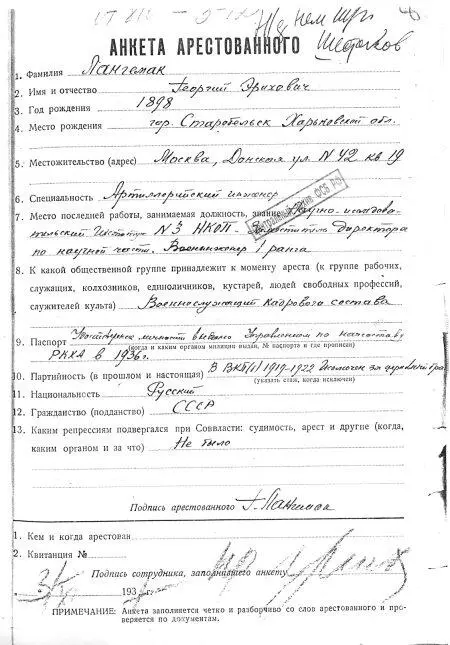 АНКЕТА АРЕСТОВАННОГО
1. Фамилия Лангемак
2. Имя и отчество Георгий Эрихович
3. Год рождения 1898
4. Место рождения гор. Старобельск Харьковской обл.
5. Местожительство (адрес) Москва, Донская ул. N 42 кв 19
6. Специальность Артиллерийский инженер
7. Место последней работы, занимаемая должность, звание Научно-исследова-
тельский Институт N 3 НКОП - Заместитель директора
по научной части. Военинженер 1 ранга
8. К какой общественной группе принадлежит к моменту ареста (к группе рабочих,
служащих, колхозников, единоличников, кустарей, людей свободных профессий,
служителей культа) Военнослужащий кадрового состава
9. Паспорт личности выдано Управлением по начсоставу
(когда и каким органом милиции выдан, № паспорта и где прописан)
РККА в 1936г.
10. Партийность (в прошлом и настоящая) В ВКП(б) 1919-1922 Исключен за церковный брак
(указать стаж, когда исключен)
11. Национальность Русский
12. Гражданство (подданство) СССР
13. Каким репрессиям подвергался при Соввласти: судимость, арест и другие (когда,
каким органом и за что) Не было
Подпись арестованного Г. Лангемак
1. Кем и когда арестован
2. Квитанция №
Подпись сотрудника, заполнявшего анкету
193
ПРИМЕЧАНИЕ: Анкета заполняется четко и разборчиво со слов арестованного и про-
веряется по документам.